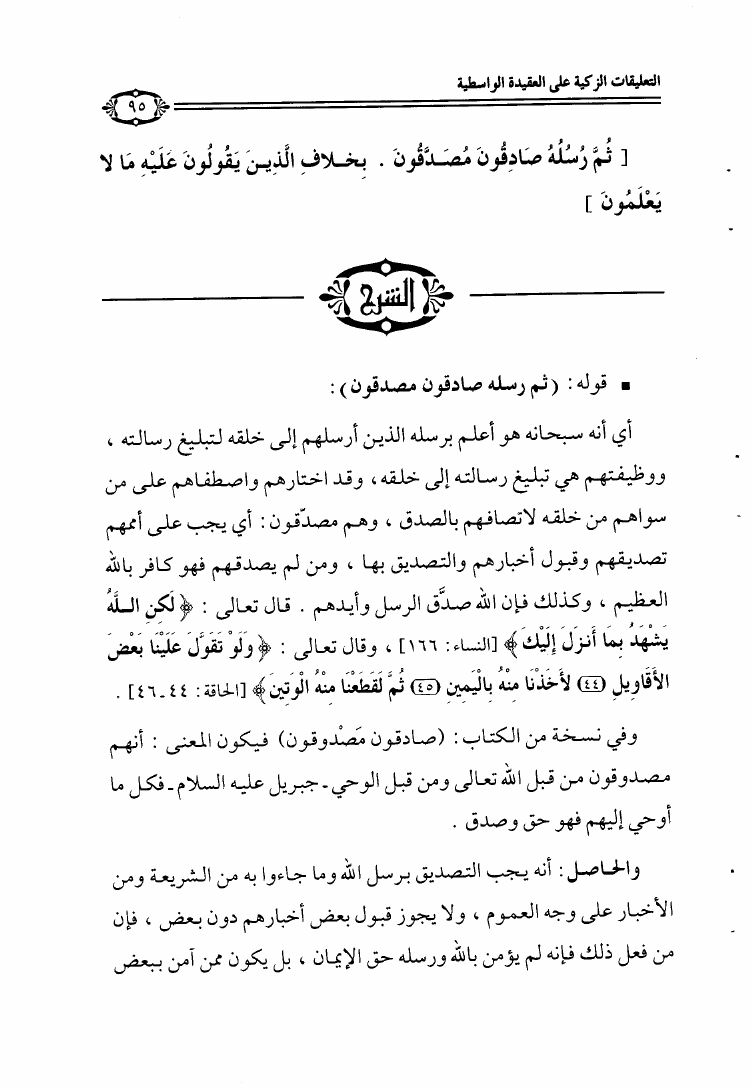 التعليقات الزكية على العقيدة الواسطية
٩٥
[ ثُمَّ رُسُلُهُ صَادِقُونَ مُصَدَّقُونَ . بِخـلافِ الَّذِيـنَ يَقُولُونَ عَلَيْهِ مَا لا
يَعْلَمُونَ ]
الشرح
■ قوله: (ثم رسله صادقون مصدقون):
أي أنه سبحانه هو أعلم برسله الذين أرسلهم إلى خلقه لتبليغ رسالته ،
ووظيفتهم هي تبليغ رسالته إلى خلقه، وقد اختارهم واصطفاهم على من
سواهم من خلقه لاتصافهم بالصدق ، وهم مصدّقون: أي يجب على أممهم
تصديقهم وقبول أخبارهم والتصديق بها ، ومن لم يصدقهم فهو كافر بالله
العظيم ، وكذلك فإن الله صدَّق الرسل وأيدهم . قال تعالى : ﴿ لَكِنِ اللَّهُ
يَشْهَدُ بِمَا أَنزَلَ إِلَيْكَ ﴾ [النساء: ١٦٦] ، وقال تعالى : ﴿ وَلَوْ تَقَوَّلَ عَلَيْنَا بَعْضَ
الأَقَاوِيلِ (٤٤) لأَخَذْنَا مِنْهُ بِالْيَمِينِ (٤٥) ثُمَّ لَقَطَعْنَا مِنْهُ الْوَتِينَ ﴾ [الحاقة: ٤٤ـ٤٦] .
وفي نسخة من الكتاب: (صادقون مَصْدوقون) فيكون المعنى : أنهم
مصدوقون من قبل الله تعالى ومن قبل الوحي ـ جبريل عليه السلام ـ فكل ما
أوحي إليهم فهو حق وصدق .
والحاصل: أنه يجب التصديق برسل الله وما جاءوا به من الشريعة ومن
الأخبار على وجه العموم ، ولا يجوز قبول بعض أخبارهم دون بعض ، فإن
من فعل ذلك فإنه لم يؤمن بالله ورسله حق الإيمان ، بل يكون ممن آمن ببعض